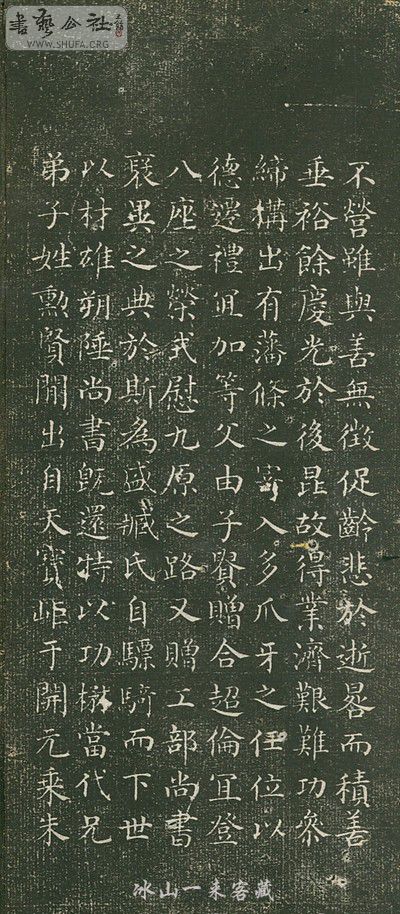 書藝公社
WWW.SHUFA.ORG
不營雖與善無徵促齡悲於逝晷而積善
垂裕餘慶光於後昆故得業濟艱難功參
締構出有藩條之寄入多爪牙之任位以
德遷禮冝加等父由子貴贈合超倫冝登
八座之榮式慰九原之路又贈工部尚書
襃異之典於斯為盛臧氏自驃騎而下世
以材雄朔陲尚書既還特以功樹當代兄
弟子姓勳賢閒出自天寶距于開元乘朱
冰山一来客藏